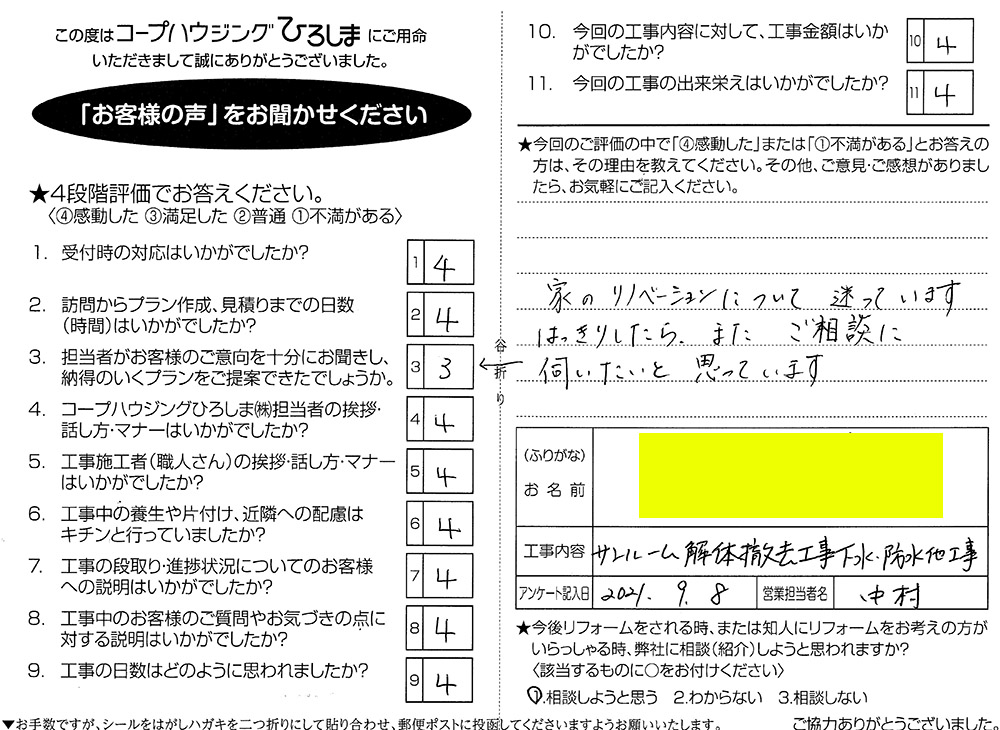 この度はコープハウジングひろしまにご用命
いただきまして誠にありがとうございました。
「お客様の声」をお聞かせください
★4段階評価でお答えください。
〈④感動した ③満足した ②普通 ①不満がある〉
1. 受付時の対応はいかがでしたか?
1 4
2. 訪問からプラン作成、見積りまでの日数
(時間)はいかがでしたか?
2 4
3. 担当者がお客様のご意向を十分にお聞きし、
納得のいくプランをご提案できたでしょうか。
3 3
4. コープハウジングひろしま㈱担当者の挨拶・
話し方・マナーはいかがでしたか?
4 4
5. 工事施工者(職人さん)の挨拶・話し方・マナー
はいかがでしたか?
5 4
6. 工事中の養生や片付け、近隣への配慮は
キチンと行っていましたか?
6 4
7. 工事の段取り・進捗状況についてのお客様
への説明はいかがでしたか?
7 4
8. 工事中のお客様のご質問やお気づきの点に
対する説明はいかがでしたか?
8 4
9. 工事の日数はどのように思われましたか?
9 4
谷折り
10. 今回の工事内容に対して、工事金額はいか
がでしたか?
10 4
11. 今回の工事の出来栄えはいかがでしたか?
11 4
★今回のご評価の中で「④感動した」または「①不満がある」とお答えの
方は、その理由を教えてください。その他、ご意見・ご感想がありまし
たら、お気軽にご記入ください。
家のリノベーションについて 迷っています
はっきりしたら、また ご相談に
← 伺いたいと 思っています
(ふりがな)
お名前
工事内容 サンルーム解体撤去工事下水・防水他工事
アンケート記入日 2021. 9. 8 営業担当者名 中村
★今後リフォームをされる時、または知人にリフォームをお考えの方が
いらっしゃる時、弊社に相談(紹介)しようと思われますか?
〈該当するものに○をお付けください〉
①.相談しようと思う 2.わからない 3.相談しない
▼お手数ですが、シールをはがしハガキを二つ折りにして貼り合わせ、郵便ポストに投函してくださいますようお願いいたします。 ご協力ありがとうございました。